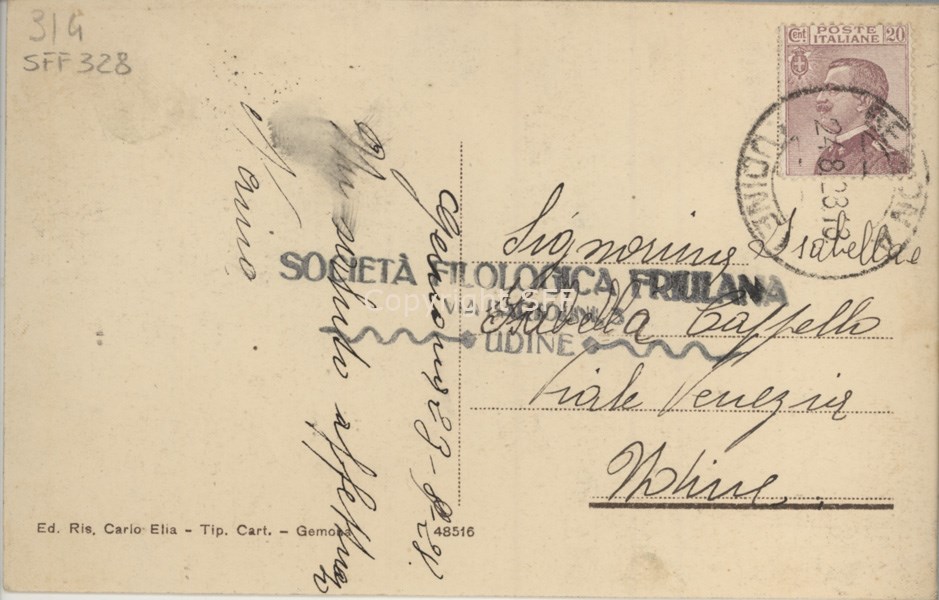 31G
SFF 328
Cent POSTE ITALIANE 20
UDINE
24.8.23
Gemona 23-8-23.
Un saluto affettuoso
Signorina Isabella
Isabella Cappello
Viale Venezia
Udine.
SOCIETÀ FILOLOGICA FRIULANA
VIA
UDINE
Copyright SFF
Ed. Ris. Carlo Elia - Tip. Cart. - Gemona
48516